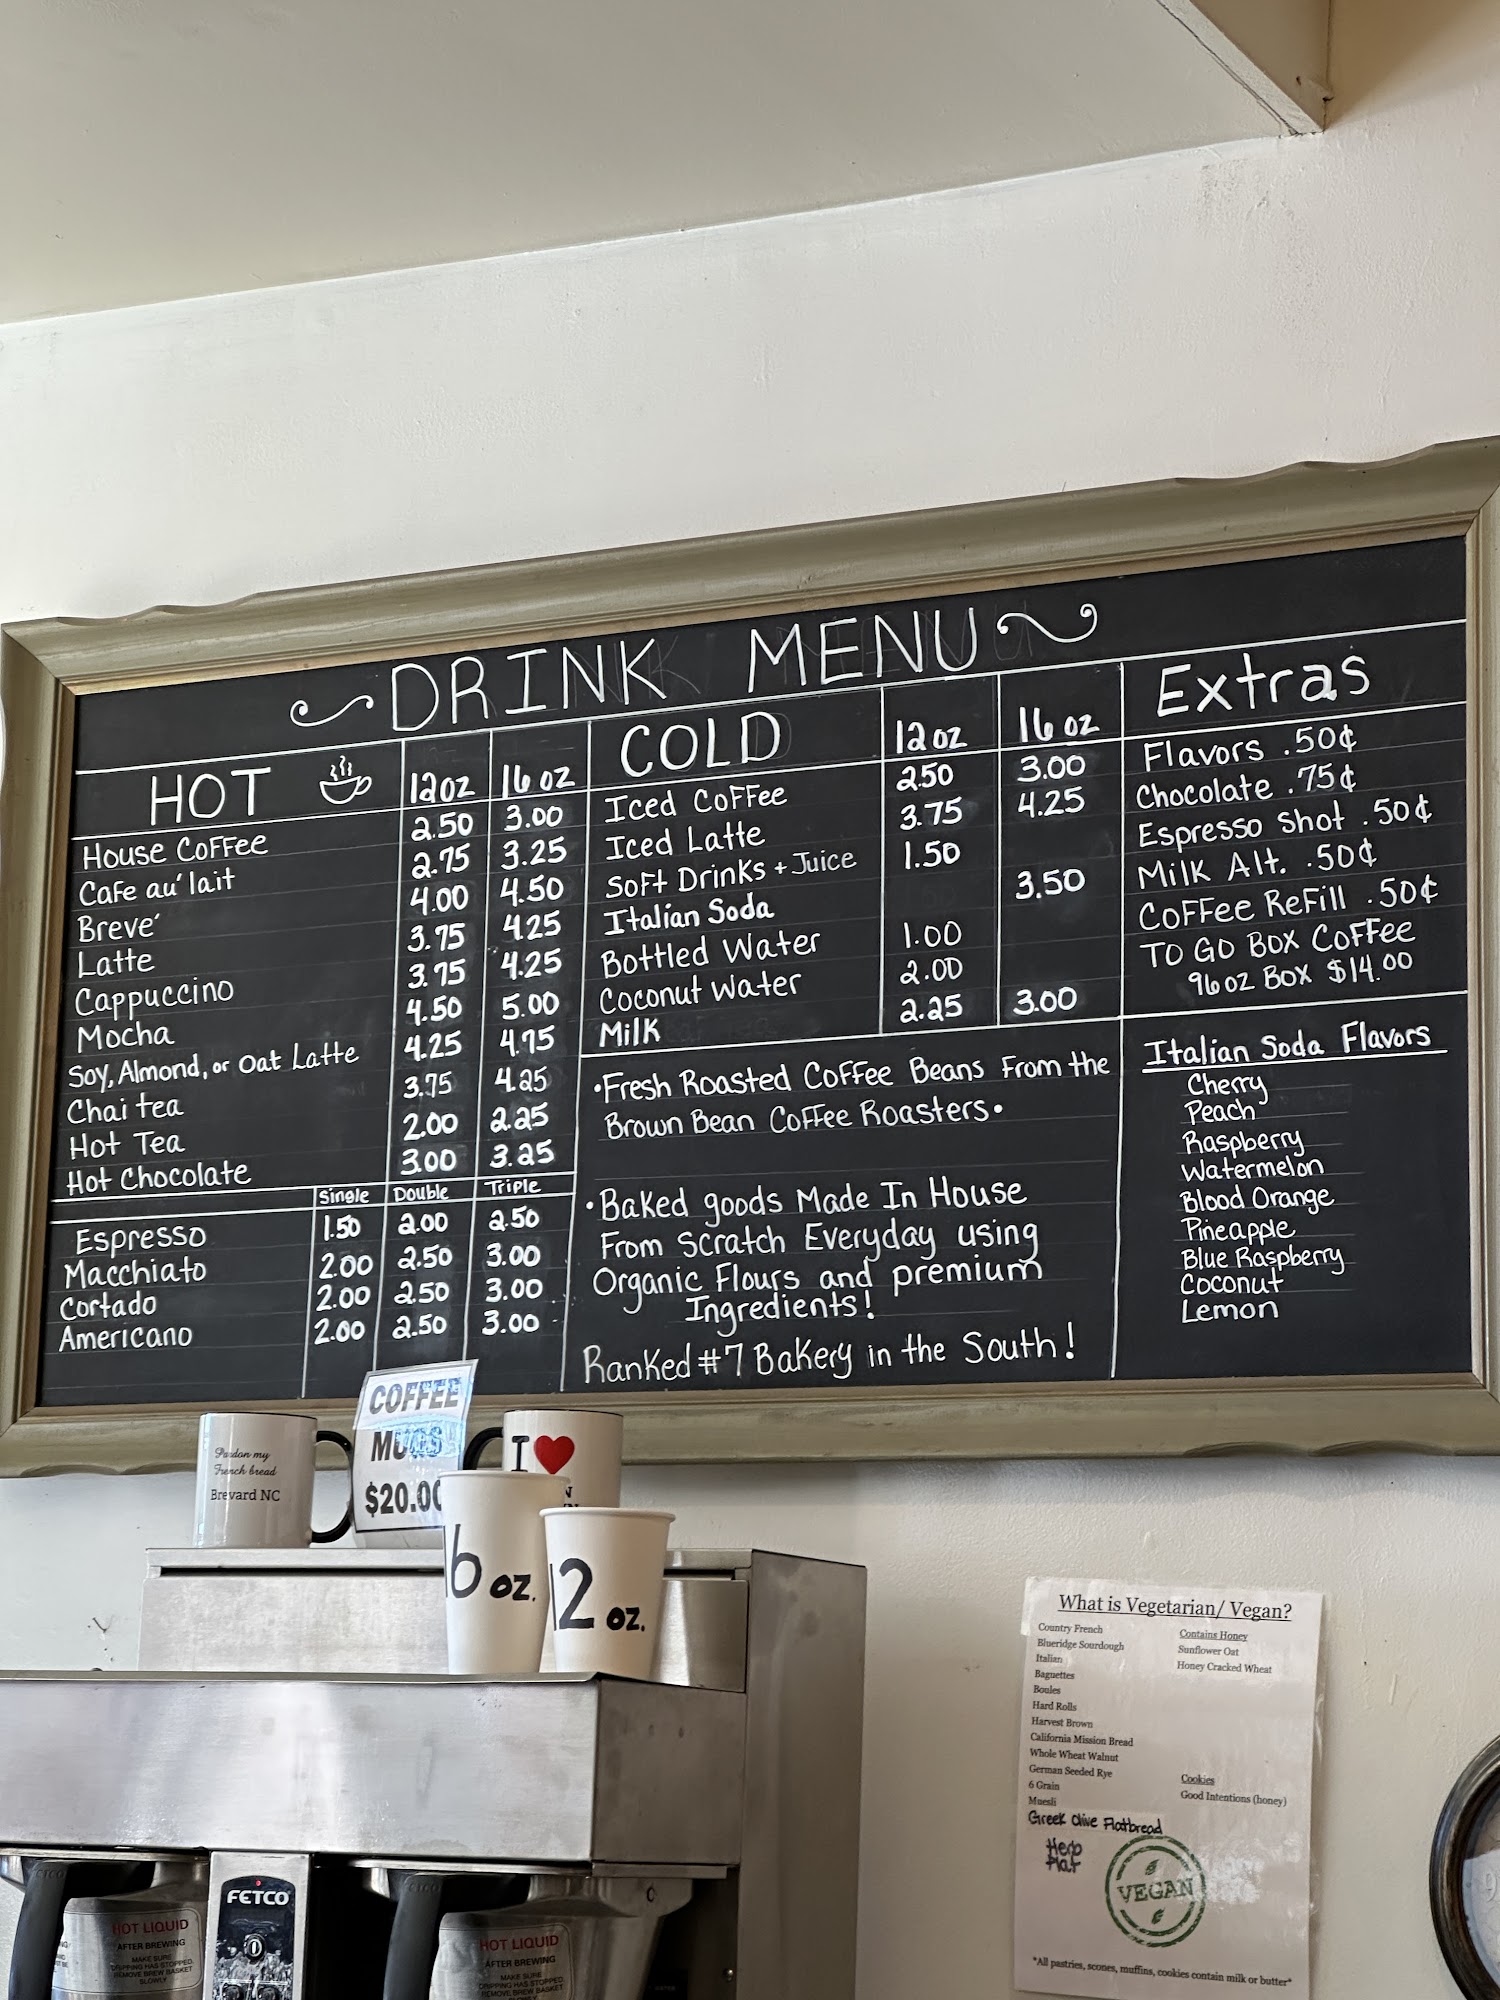 DRINK MENU
HOT 12 oz 16 oz
House Coffee 2.50 3.00
Cafe au' lait 2.75 3.25
Breve' 4.00 4.50
Latte 3.75 4.25
Cappuccino 3.75 4.25
Mocha 4.50 5.00
Soy, Almond, or Oat Latte 4.25 4.75
Chai tea 3.75 4.25
Hot Tea 2.00 2.25
Hot Chocolate 3.00 3.25
Single Double Triple
Espresso 1.50 2.00 2.50
Macchiato 2.00 2.50 3.00
Cortado 2.00 2.50 3.00
Americano 2.00 2.50 3.00
COLD 12 oz 16 oz
Iced Coffee 2.50 3.00
Iced Latte 3.75 4.25
Soft Drinks + Juice 1.50
Italian Soda 3.50
Bottled Water 1.00
Coconut Water 2.00
Milk 2.25 3.00
•Fresh Roasted Coffee Beans From the
Brown Bean Coffee Roasters•
•Baked goods Made In House
From Scratch Everyday using
Organic Flours and premium
Ingredients!
Ranked #7 Bakery in the South!
Extras
Flavors .50¢
Chocolate .75¢
Espresso Shot .50¢
Milk Alt. .50¢
Coffee Refill .50¢
TO GO BOX COFFEE
96 oz Box $14.00
Italian Soda Flavors
Cherry
Peach
Raspberry
Watermelon
Blood Orange
Pineapple
Blue Raspberry
Coconut
Lemon
Pardon my
French bread
Brevard NC
COFFEE
MUGS
$20.00
I
16 oz.
12 oz.
What is Vegetarian/ Vegan?
Country French
Blueridge Sourdough
Italian
Baguettes
Boules
Hard Rolls
Harvest Brown
California Mission Bread
Whole Wheat Walnut
German Seeded Rye
6 Grain
Muesli
Greek Olive Flatbread
Contains Honey
Sunflower Oat
Honey Cracked Wheat
Cookies
Good Intentions (honey)
VEGAN
*All pastries, scones, muffins, cookies contain milk or butter*
FETCO
HOT LIQUID
AFTER BREWING
MAKE SURE
DRIPPING HAS STOPPED.
REMOVE BREW BASKET
SLOWLY
HOT LIQUID
AFTER BREWING
MAKE SURE
DRIPPING HAS STOPPED.
REMOVE BREW BASKET